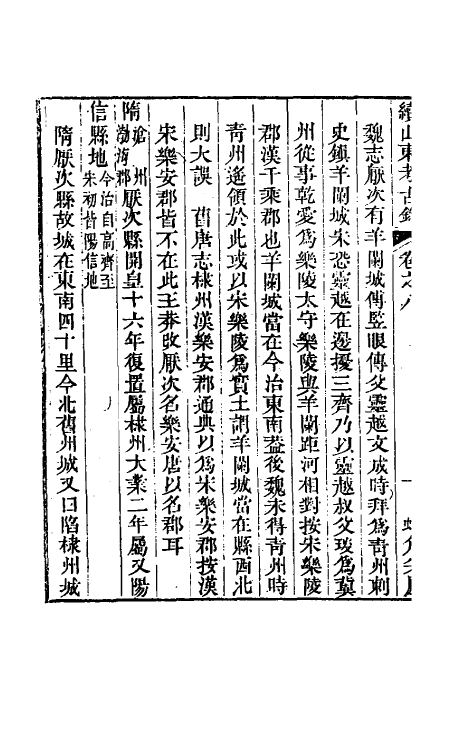 續山東考古錄 卷之八
魏志厭次有羊闌城傅豎眼傳父靈越文成時拜爲青州刺
史鎮羊闌城宋恐靈越在邊擾三齊乃以靈越叔父琰爲冀
州從事乾愛爲樂陵太守樂陵與羊闌距河相對按宋樂陵
郡漢千乘郡也羊闌城當在今治東南葢後魏未得青州時
青州遙領於此或以宋樂陵爲實土謂羊闌城當在縣西北
則大誤 舊唐志棣州漢樂安郡通典以爲宋樂安郡按漢
宋樂安郡皆不在此王莽改厭次名樂安唐以名郡耳
隋滄州渤海郡厭次縣開皇十六年復置屬棣州大業二年屬又陽
信縣地今治自高齊至朱初皆陽信地
隋厭次縣故城在東南四十里今北舊州城又曰陷棣州城